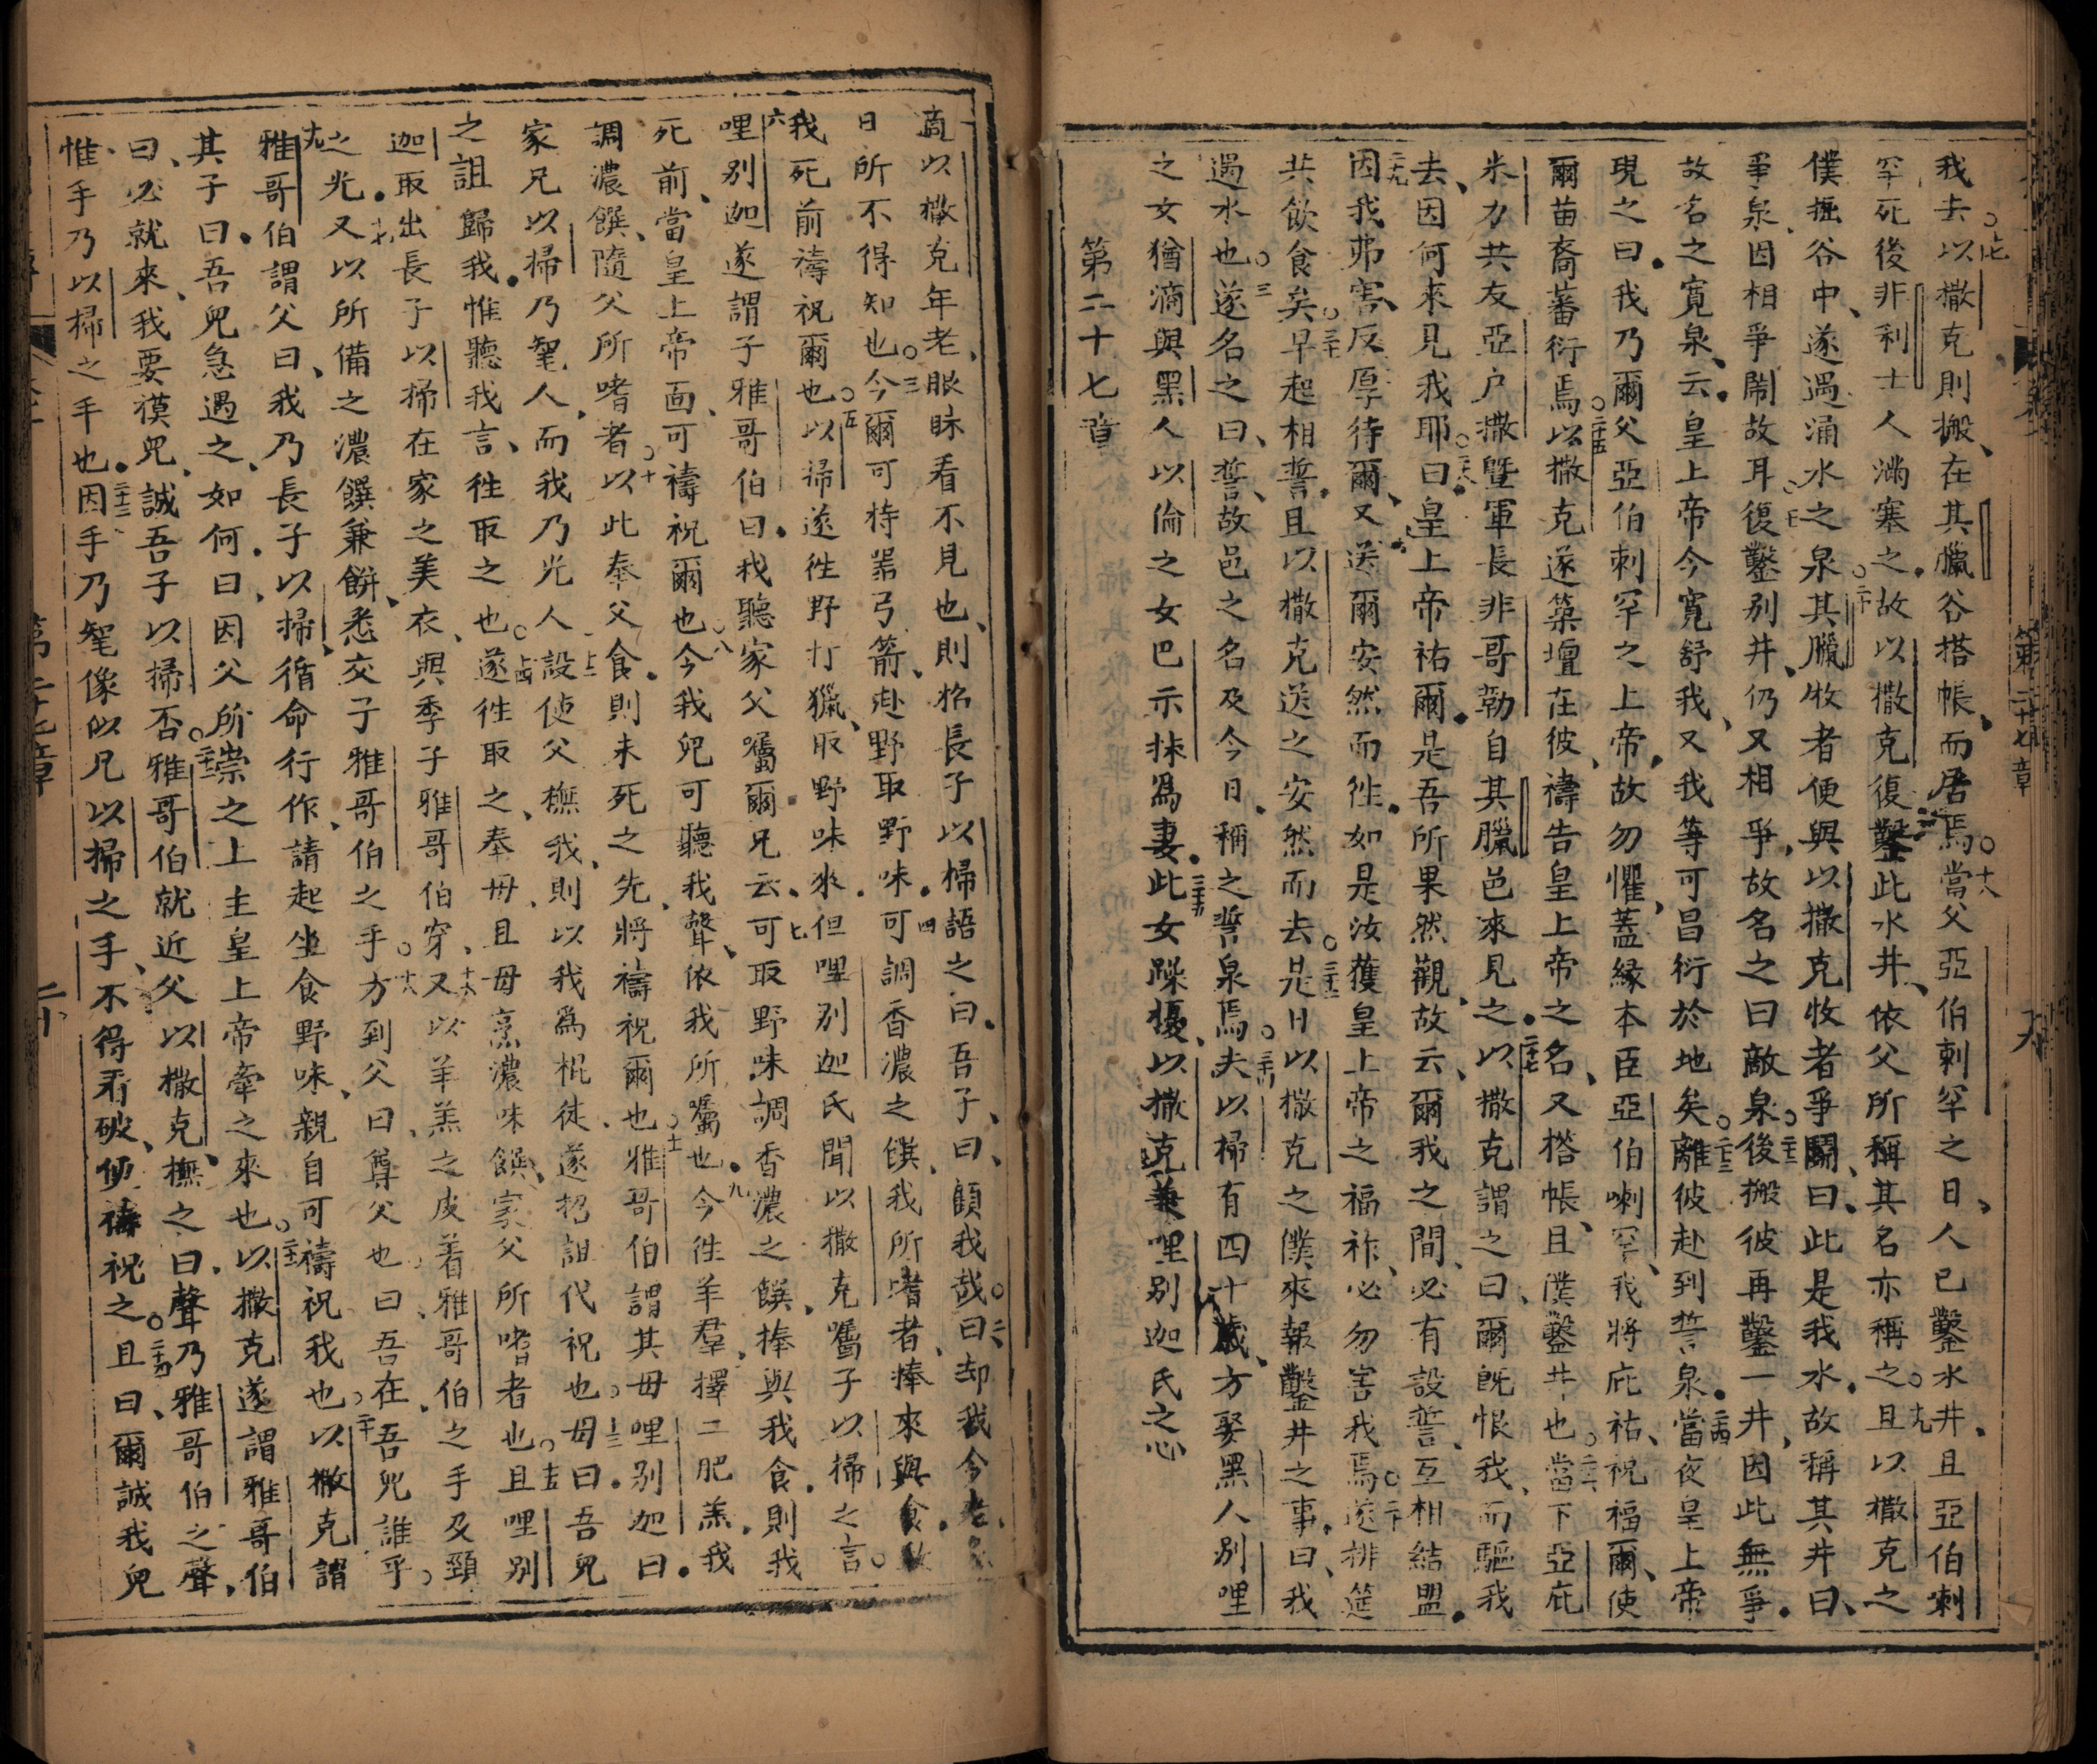 我去○十七以撒克則搬、在其臘谷搭帳、而居焉○十八當父亞伯剌罕之日、人已鑿水井、且亞伯喇
罕死後非利士人滿塞之、故以撒克復鑿此水井、依父所稱其名亦稱之○十九且以撒克之
僕掘谷中、遂遇涌水之泉○二十其臘牧者便與以撒克牧者爭鬭、曰、此是我水、故稱其井曰、
爭泉、因相爭鬧故耳○復鑿別井、仍又相爭、故名之曰敵泉○二十二後搬彼再鑿一井、因此無爭、
故名之寬泉、云、皇上帝今寬舒我、又我等可昌衍於地矣○二十三離彼赴到誓泉、二十四當夜皇上帝
現之曰、我乃爾父亞伯刺罕之上帝、故勿懼、蓋縁本臣亞伯喇罕、我將庇祐、祝福爾、使
爾苗裔蕃衍焉○二十五以撒克遂築壇在彼、禱告皇上帝之名、又搭帳、且僕鑿井也○二十六當下亞庇
米力共友亞户撒曁軍長非哥勒自其臘邑來見之、二十七以撒克謂之曰、爾旣恨我、而驅我
去、因何來見我耶○二十八曰、皇上帝祐爾、是吾所果然觀、故云、爾我之間、必有設誓、互相結盟、
二十九因我弗害、反厚待爾、又送爾安然而徃、如是汝獲皇上帝之福祚、必勿害我焉○三十遂排筵
共飲食矣○三十一早起相誓、且以撒克送之安然而去○三十二是日以撒克之僕來報鑿井之事、曰、我
遇水也○三十三遂名之曰、誓、故邑之名及今日、稱之誓泉焉○三十四夫以掃有四十歲、方娶黑人別哩
之女猶滴與黑人以倫之女巴示抹爲妻、三十五此女躁擾、以撒克兼哩別迦氏之心
第二十七章
一商以撒克年老、眼昧看不見也、則招長子以掃語之曰、吾子、曰、顧我哉○二曰却我今老、
日所不得知也○三今爾可持器弓箭、赴野取野味、四可調香濃之饌、我所嗜者、捧來與食、
我死前禱祝爾也○五以掃遂徃野打獵、取野味來、但哩別迦氏聞以撒克囑子以掃之言○
六哩別迦遂謂子雅哥伯曰、我聽家父囑爾兄云、七可取野味、調香濃之饌、捧與我食、則我
死前、當皇上帝面、可禱祝爾也○八今我兒可聽我聲、依我所囑也、九今徃羊羣、擇二肥羔、我
調濃饌、隨父所嗜者○十以此奉父食、則未死之先、將禱祝爾也○十一雅哥伯謂其母哩別迦曰、
家兄以掃乃髦人、而我乃光人、十二設使父撫我、則以我爲棍徒、遂招詛代祝也○十三母曰、吾兒
之詛歸我、惟聽我言、徃取之也○十四遂徃取之、奉母、且母烹濃味饌、家父所嗜者也○十五且哩別
迦取出長子以掃在家之美衣、與季子雅哥伯穿、十六又以羊羔之皮着雅哥伯之手及頸
之光、十七又以所備之濃饌兼餠、悉交子雅哥伯之手○十八方到父曰、尊父也、曰、吾在、吾兒誰乎○
十九雅哥伯謂父曰、我乃長子以掃、循命行作、請起坐食野味、親自可禱祝我也○二十以撒克謂
其子曰、吾兒急遇之、如何、曰、因父所崇之上主皇上帝牽之來也○二十一以撒克遂謂雅哥伯
曰、必就來、我要摸兒、誠吾子以掃否○二十二雅哥伯就近父以撒克、撫之曰、聲乃雅哥伯之聲、
惟手乃以掃之手也、二十三因手乃髦像似兄以掃之手、不得看破、便禱祝之○二十四且曰、爾誠我兒
第二十七章